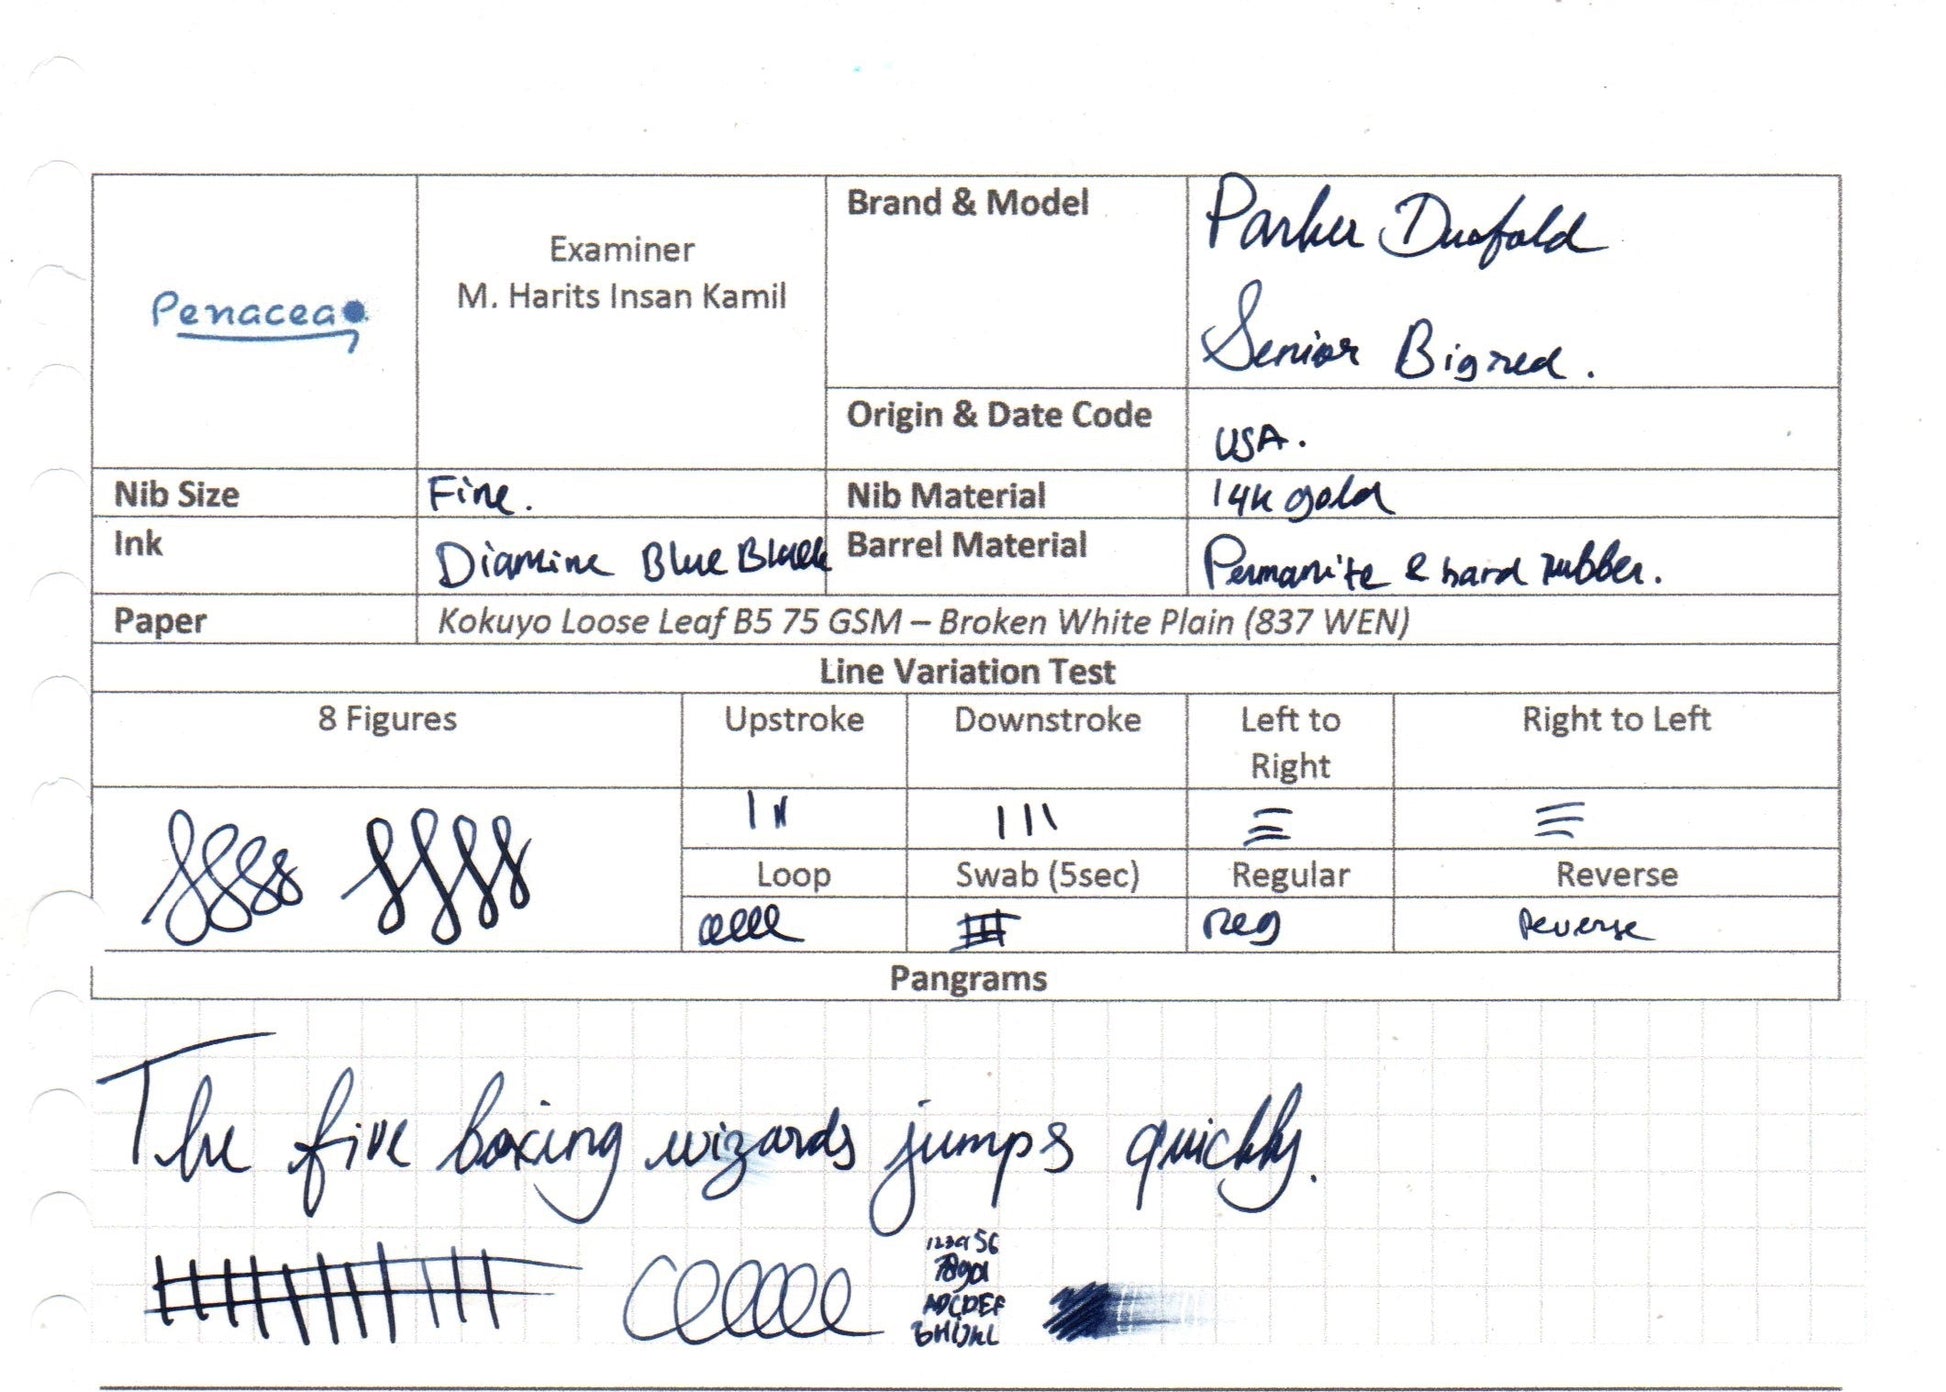 Penacea
Examiner
M. Harits Insan Kamil
Brand & Model
Parker Duofold
Senior Bigred.
Origin & Date Code
USA.
Nib Size
Fine.
Nib Material
14K gold
Ink
Diamine Blue Black
Barrel Material
Permanite & hard rubber.
Paper
Kokuyo Loose Leaf B5 75 GSM – Broken White Plain (837 WEN)
Line Variation Test
8 Figures
Upstroke
Downstroke
Left to
Right
Right to Left
Loop
Swab (5sec)
Regular
Reverse
Reg
Reverse
Pangrams
The five boxing wizards jumps quickly.
123456
ABCDEF
GHIJKL